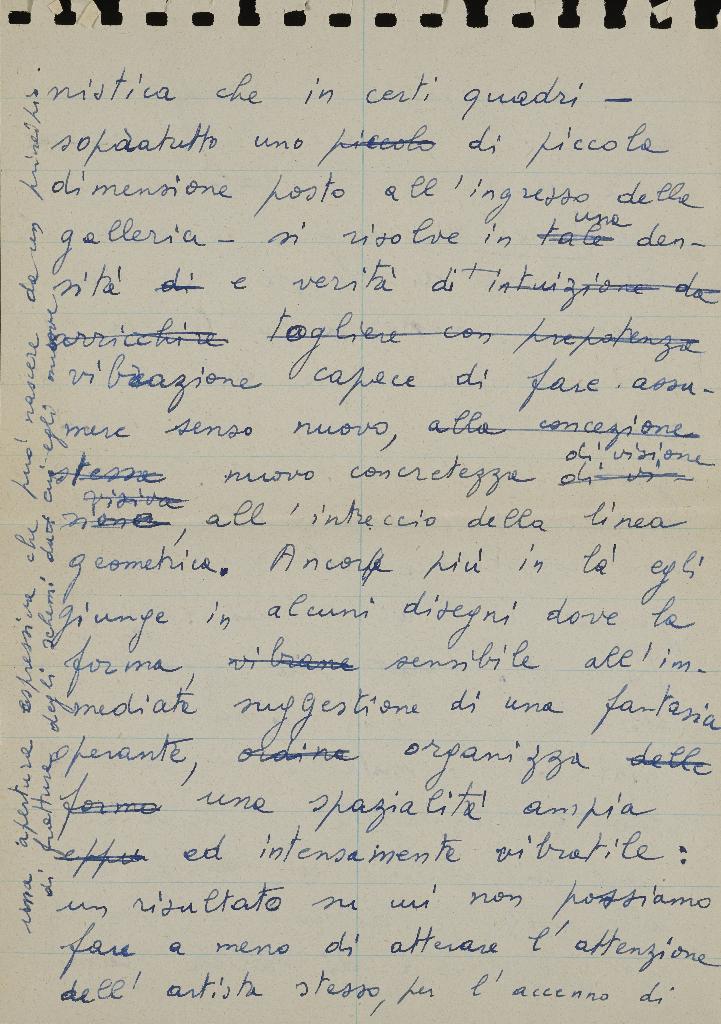 nistica che in certi quadri —
sopratutto uno piccolo di piccola
dimensione posto all'ingresso della
galleria - si risolve in tale una den-
sità di e verità di intuizione da
arricchire togliere con prepotenza
vibrazione capace di fare assu-
mere senso nuovo, alla concezione
stessa nuovo concretezza di vi- di visione
sione visiva, all'intreccio della linea
geometrica. Ancor più in là egli
giunge in alcuni disegni dove la
forma, vibrane sensibile all'im-
mediate suggestione di una fantasia
operante, ordina organizza delle
forme una spazialità ampia
eppu ed intensamente vibratile:
un risultato su cui non possiamo
fare a meno di atterare l'attenzione
dell'artista stesso, per l'accenno di
una apertura espressiva che può nascere da un principio
di frattura degli schemi dai cui egli muove